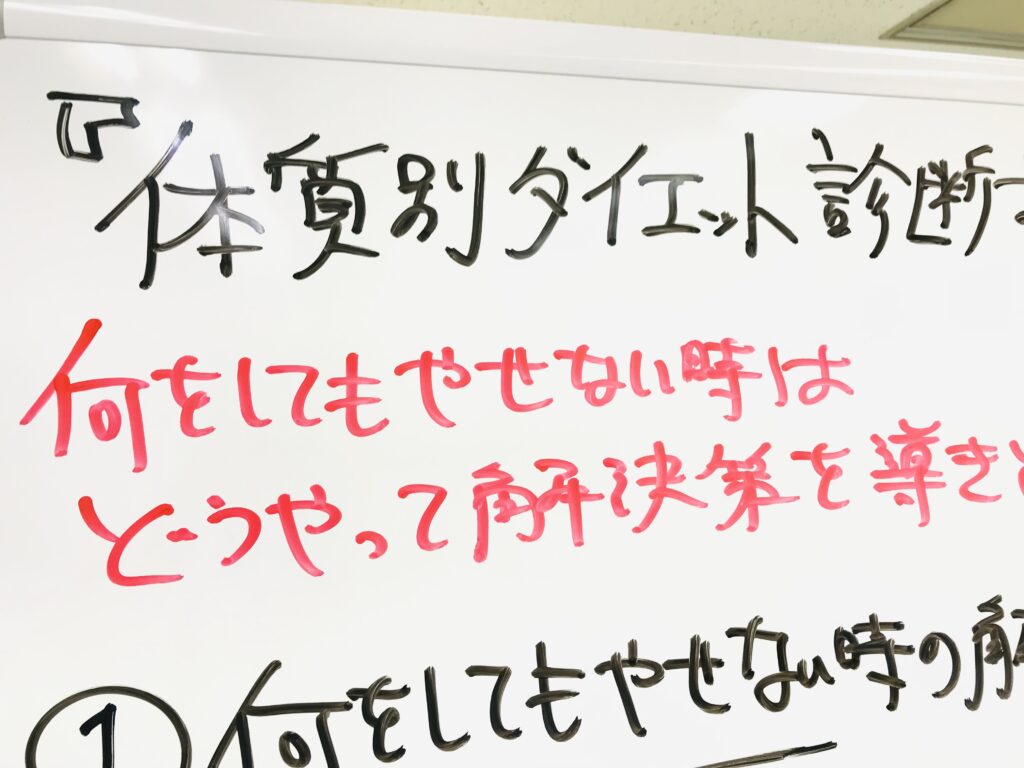 『体質別ダイエット診断
何をしてもやせない時は
どうやって解決策を導き
① 何をしてもやせない時の